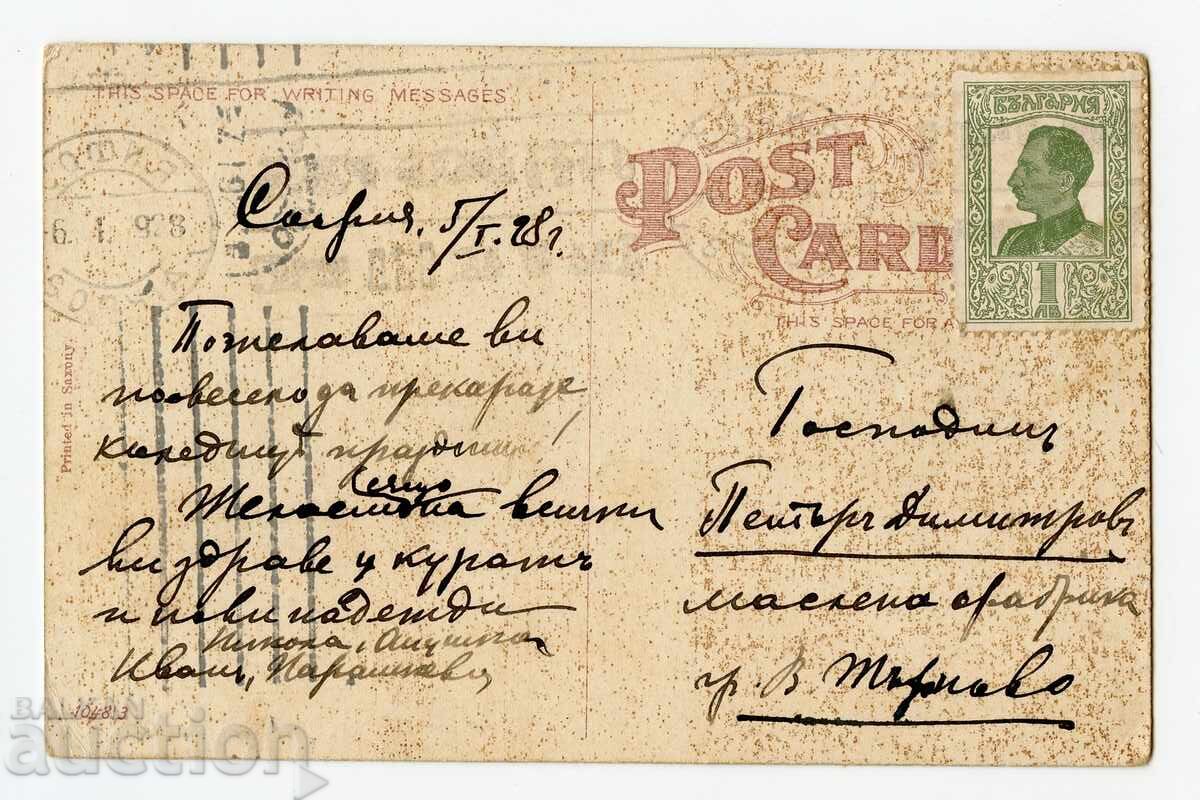 THIS SPACE FOR WRITING MESSAGES
POST CARD
THIS SPACE FOR A
БЪЛГАРИЯ
1
ЛВ
София
6. 1. 928
София, 5/I. 28 г.
Пожелаваме ви
повесело да прекарате
коледните празници!
Желаем на всички
ви здраве и куражъ
и нови надежди
Никола,
Иванъ, Парашкева
Господинъ
Петъръ Димитровъ
маслена фабрика
гр. В Търново
Printed in Saxony.
10483
BALKAN
auction